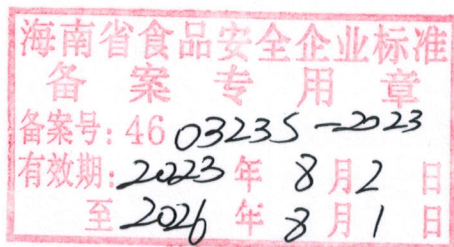 海南省食品安全企业标准
备案专用章
备案号：46 03235-2023
有效期：2023年8月2日
至2026年8月1日